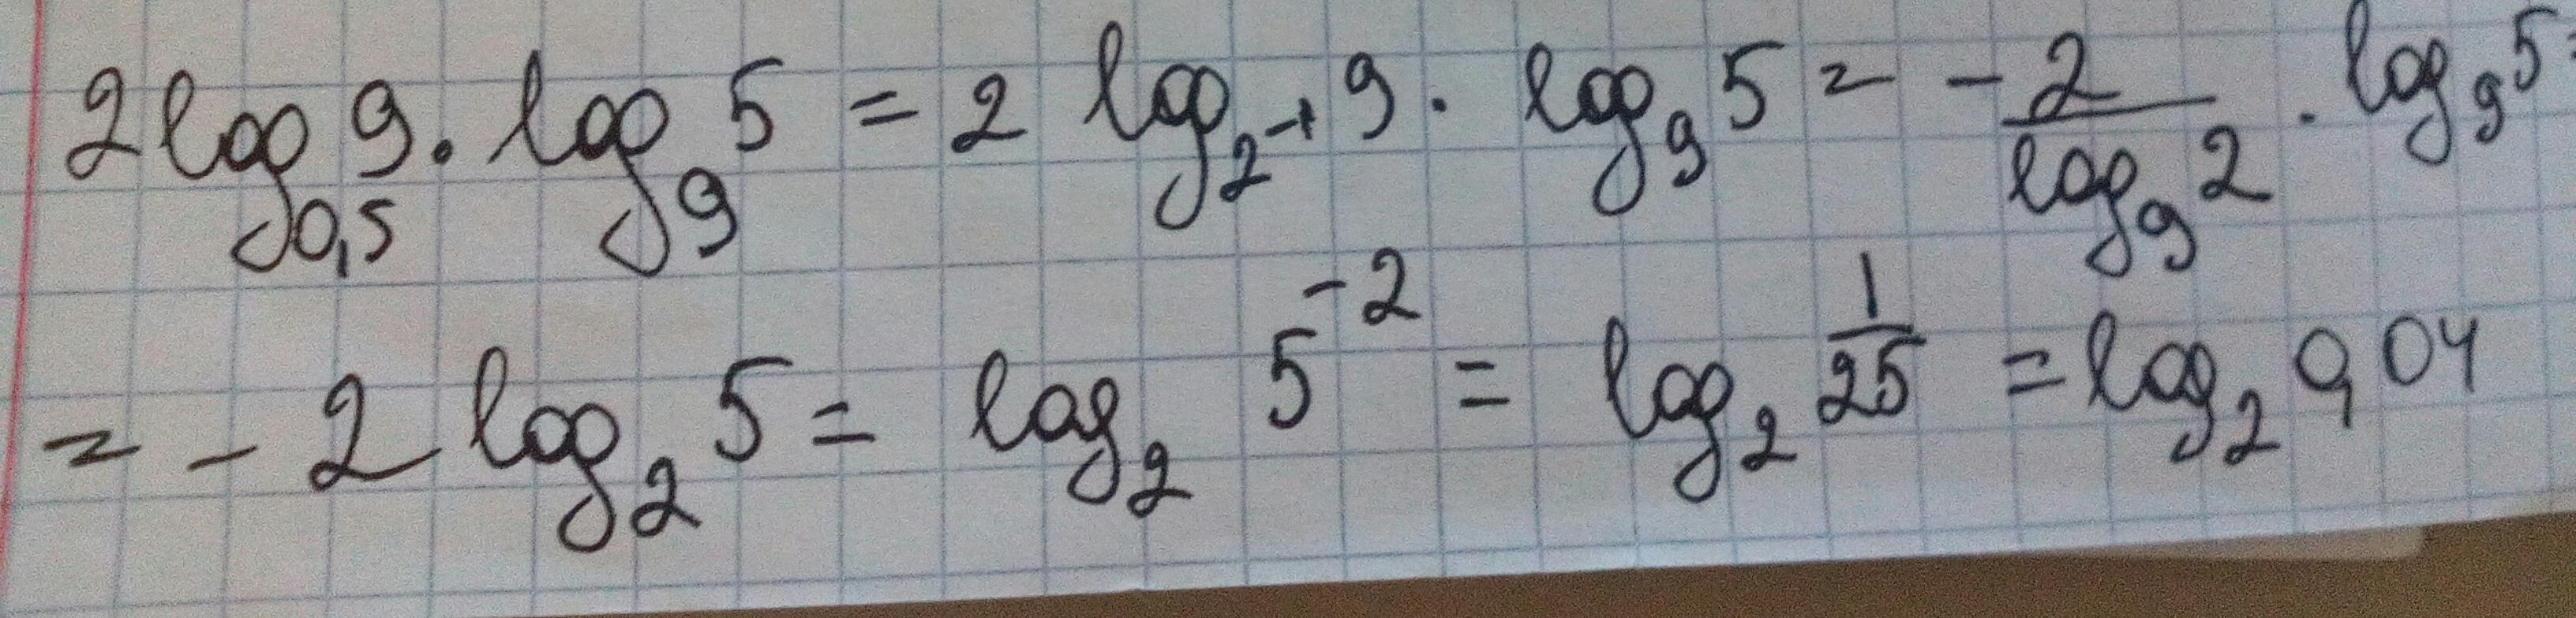 2 log₀,₅ 9 · log₉ 5 = 2 log₂₋₁ 9 · log₉ 5 = - 2/log₉ 2 · log₉ 5 =
= - 2 log₂ 5 = log₂ 5⁻² = log₂ 1/25 = log₂ 0,04